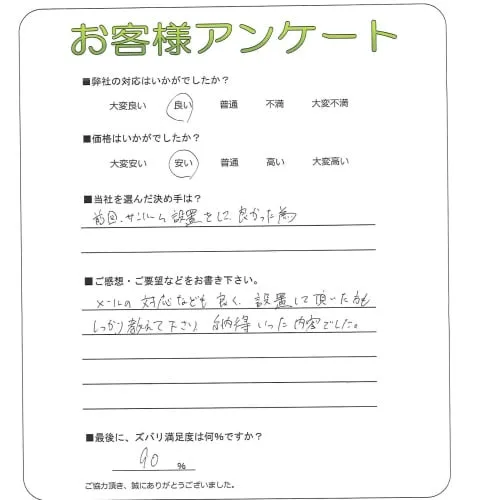 お客様アンケート
■弊社の対応はいかがでしたか？
大変良い 良い 普通 不満 大変不満
■価格はいかがでしたか？
大変安い 安い 普通 高い 大変高い
■当社を選んだ決め手は？
前回、サンルーム設置をして良かった為
■ご感想・ご要望などをお書き下さい。
メールの対応なども良く、設置して頂いた方も
しっかり教えて下さり納得いった内容でした。
■最後に、ズバリ満足度は何％ですか？
90 ％
ご協力頂き、誠にありがとうございました。